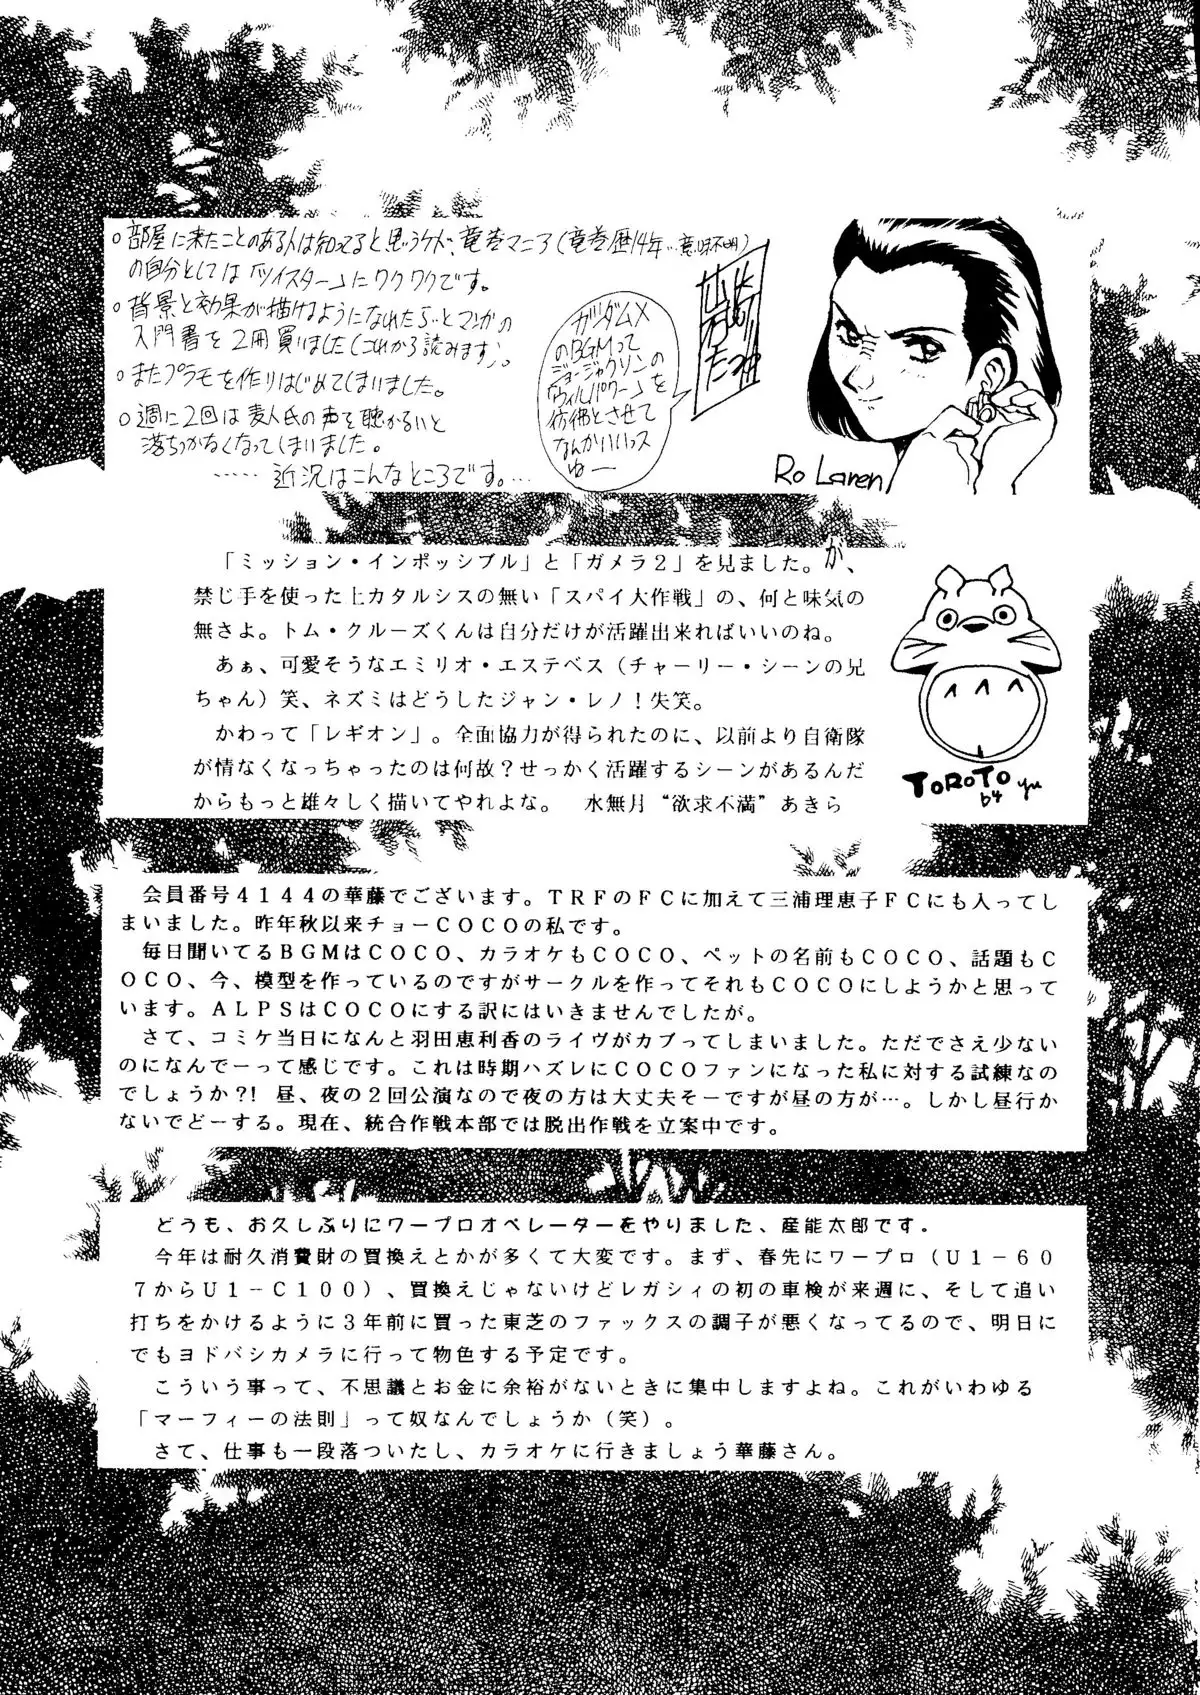 ○部屋に来たことのある人は知ってると思うケド、竜巻マニア(竜巻歴14年…意味不明)
の自分としては「ツイスター」にワクワクです。
○背景と効果が描けるようになれたら…とマンガの
入門書を2冊買いました(これから読みます)。
○またプラモを作りはじめてしまいました。
○週に2回は麦人氏の声を聴かないと
落ちつかなくなってしまいました。
……近況はこんなところです。…
ガンダムX
のBGMって
ジョー・ジャクソンの
「ウィルパワー」を
彷彿とさせて
なんかいいっス
ゆー
Ro Laren
「ミッション・インポッシブル」と「ガメラ2」を見ました。が、
禁じ手を使った上カタルシスの無い「スパイ大作戦」の、何と味気の
無さよ。トム・クルーズくんは自分だけが活躍出来ればいいのね。
あぁ、可愛そうなエミリオ・エステベス(チャーリー・シーンの兄
ちゃん)笑、ネズミはどうしたジャン・レノ!失笑。
かわって「レギオン」。全面協力が得られたのに、以前より自衛隊
が情なくなっちゃったのは何故?せっかく活躍するシーンがあるんだ
からもっと雄々しく描いてやれよな。 水無月“欲求不満”あきら
TOROTO
by yu
会員番号4144の華藤でございます。TRFのFCに加えて三浦理恵子FCにも入ってし
まいました。昨年秋以来チョーCOCOの私です。
毎日聞いてるBGMはCOCO、カラオケもCOCO、ペットの名前もCOCO、話題もC
OCO、今、模型を作っているのですがサークルを作ってそれもCOCOにしようかと思って
います。ALPSはCOCOにする訳にはいきませんでしたが。
さて、コミケ当日になんと羽田恵利香のライヴがカブってしまいました。ただでさえ少ない
のになんでーって感じです。これは時期ハズレにCOCOファンになった私に対する試練なの
でしょうか?! 昼、夜の2回公演なので夜の方は大丈夫そーですが昼の方が…。しかし昼行か
ないでどーする。現在、統合作戦本部では脱出作戦を立案中です。
どうも、お久しぶりにワープロオペレーターをやりました、産能太郎です。
今年は耐久消費財の買換えとかが多くて大変です。まず、春先にワープロ(U1-60
7からU1-C100)、買換えじゃないけどレガシィの初の車検が来週に、そして追い
打ちをかけるように3年前に買った東芝のファックスの調子が悪くなってるので、明日に
でもヨドバシカメラに行って物色する予定です。
こういう事って、不思議とお金に余裕がないときに集中しますよね。これがいわゆる
「マーフィーの法則」って奴なんでしょうか(笑)。
さて、仕事も一段落ついたし、カラオケに行きましょう華藤さん。